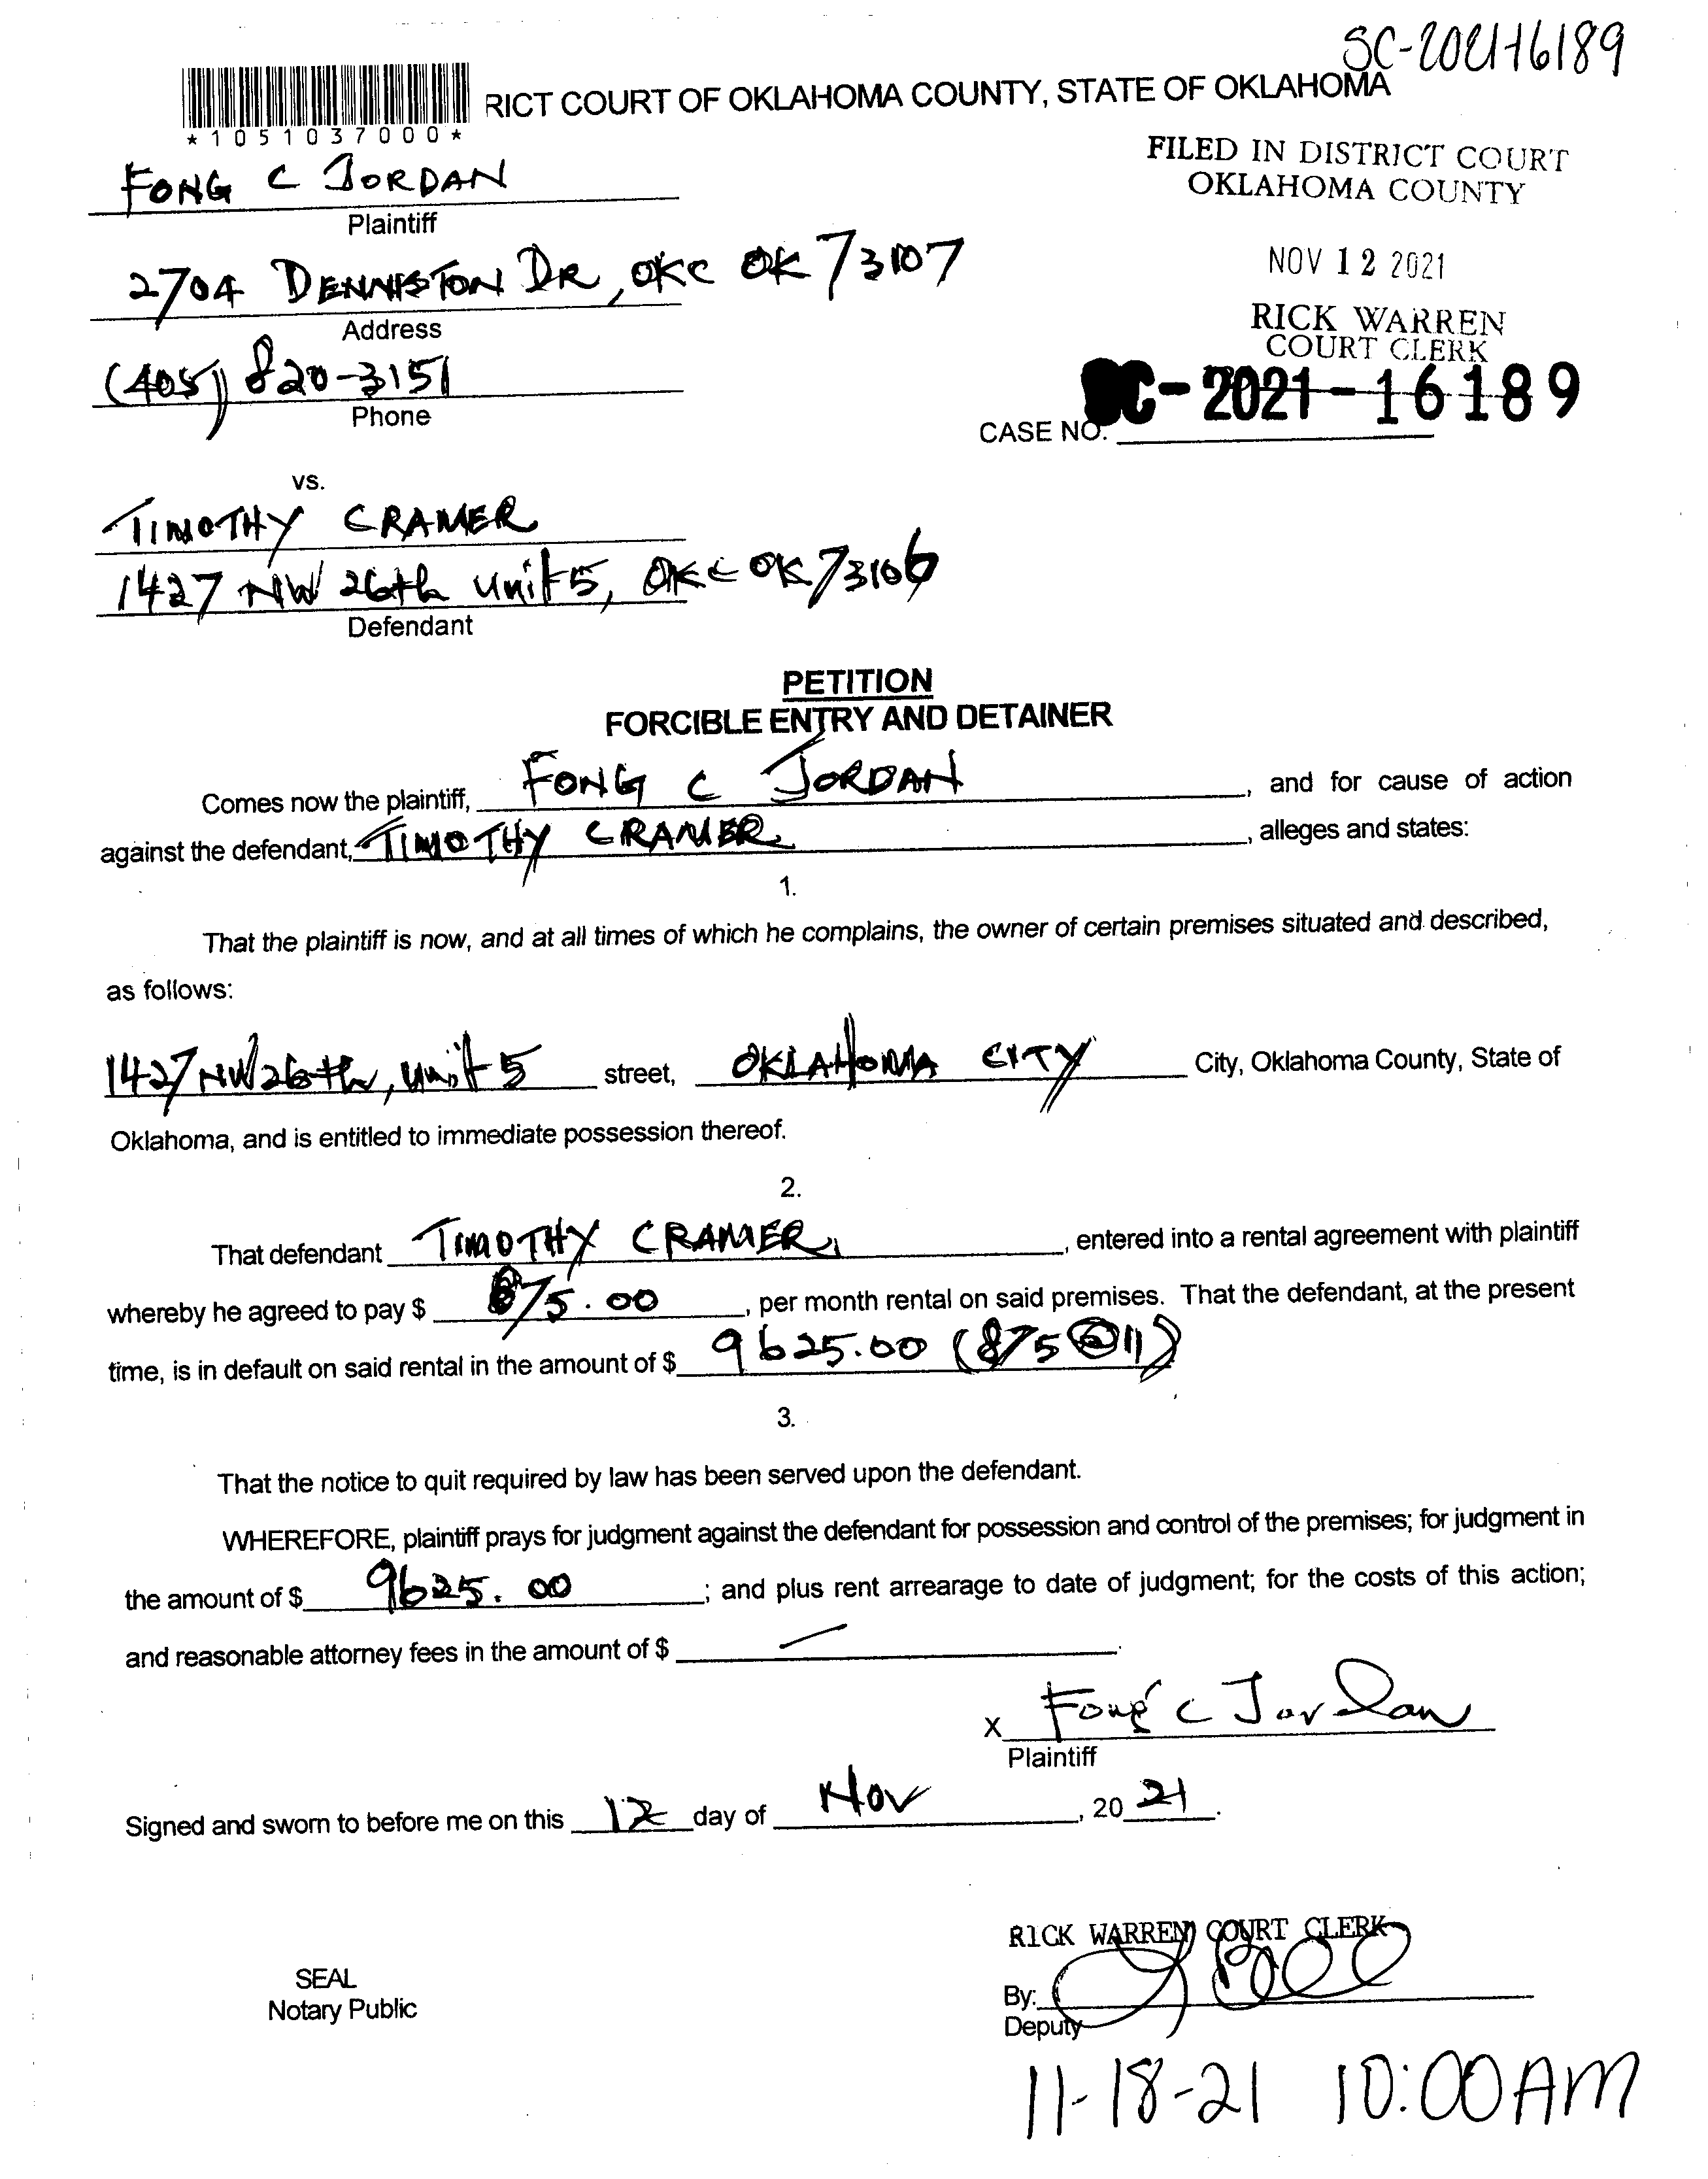 SC-2021-16189
RICT COURT OF OKLAHOMA COUNTY, STATE OF OKLAHOMA
*1051037000*
FILED IN DISTRICT COURT
OKLAHOMA COUNTY
FONG C JORDAN
Plaintiff
NOV 12 2021
2704 DENNISTON DR, OKC OK 73107
Address
RICK WARREN
COURT CLERK
(405) 820-3151
Phone
SC-2021-16189
CASE NO.
vs.
TIMOTHY CRAMER
1427 NW 26th unit 5, OKC OK 73106
Defendant
PETITION
FORCIBLE ENTRY AND DETAINER
Comes now the plaintiff, FONG C JORDAN, and for cause of action
against the defendant, TIMOTHY CRAMER, alleges and states:
1.
That the plaintiff is now, and at all times of which he complains, the owner of certain premises situated and described,
as follows:
1427 NW 26th, unit 5 street, OKLAHOMA CITY City, Oklahoma County, State of
Oklahoma, and is entitled to immediate possession thereof.
2.
That defendant TIMOTHY CRAMER, entered into a rental agreement with plaintiff
whereby he agreed to pay $ 875.00, per month rental on said premises. That the defendant, at the present
time, is in default on said rental in the amount of $ 9625.00 (875@11)
3.
That the notice to quit required by law has been served upon the defendant.
WHEREFORE, plaintiff prays for judgment against the defendant for possession and control of the premises; for judgment in
the amount of $ 9625.00; and plus rent arrearage to date of judgment; for the costs of this action;
and reasonable attorney fees in the amount of $ —.
X Fong C Jordan
Plaintiff
Signed and sworn to before me on this 12 day of Nov, 2021.
RICK WARREN COURT CLERK
SEAL
Notary Public
By:
Deputy
11-18-21 10:00AM